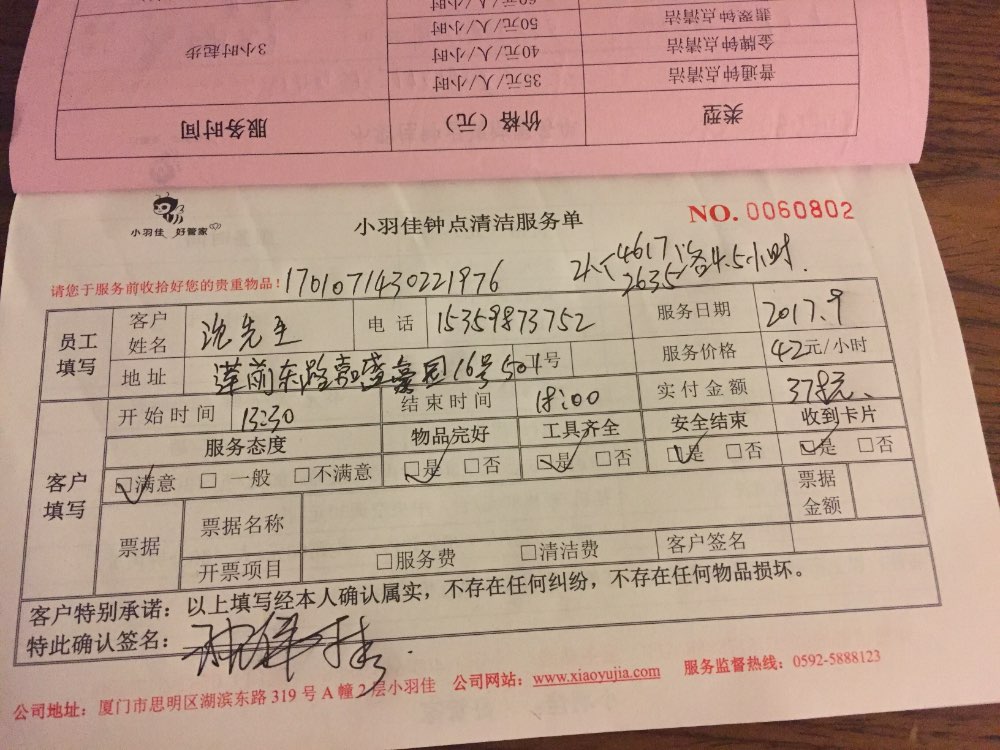 60元/人/小时
翡翠钟点清洁 50元/人/小时
金牌钟点清洁 40元/人/小时 3小时起步
普通钟点清洁 35元/人/小时
类型 价格（元） 服务时间
小羽佳 好管家
小羽佳钟点清洁服务单
NO. 0060802
请您于服务前收拾好您的贵重物品！ 1701071430221976
2人 4617 2635 各4.5小时.
员工填写 客户姓名 沈先生 电话 15359873752 服务日期 2017.9
地址 莲前东路嘉盛豪园16号504号 服务价格 42元/小时
客户填写 开始时间 13:30 结束时间 18:00 实付金额 378元
服务态度 物品完好 工具齐全 安全结束 收到卡片
☑满意 □一般 □不满意 ☑是 □否 ☑是 □否 ☑是 □否 ☑是 □否
票据 票据名称 票据金额
开票项目 □服务费 □清洁费 客户签名
客户特别承诺：以上填写经本人确认属实，不存在任何纠纷，不存在任何物品损坏。
特此确认签名：
公司地址：厦门市思明区湖滨东路319号A幢2层小羽佳 公司网站：www.xiaoyujia.com 服务监督热线：0592-5888123